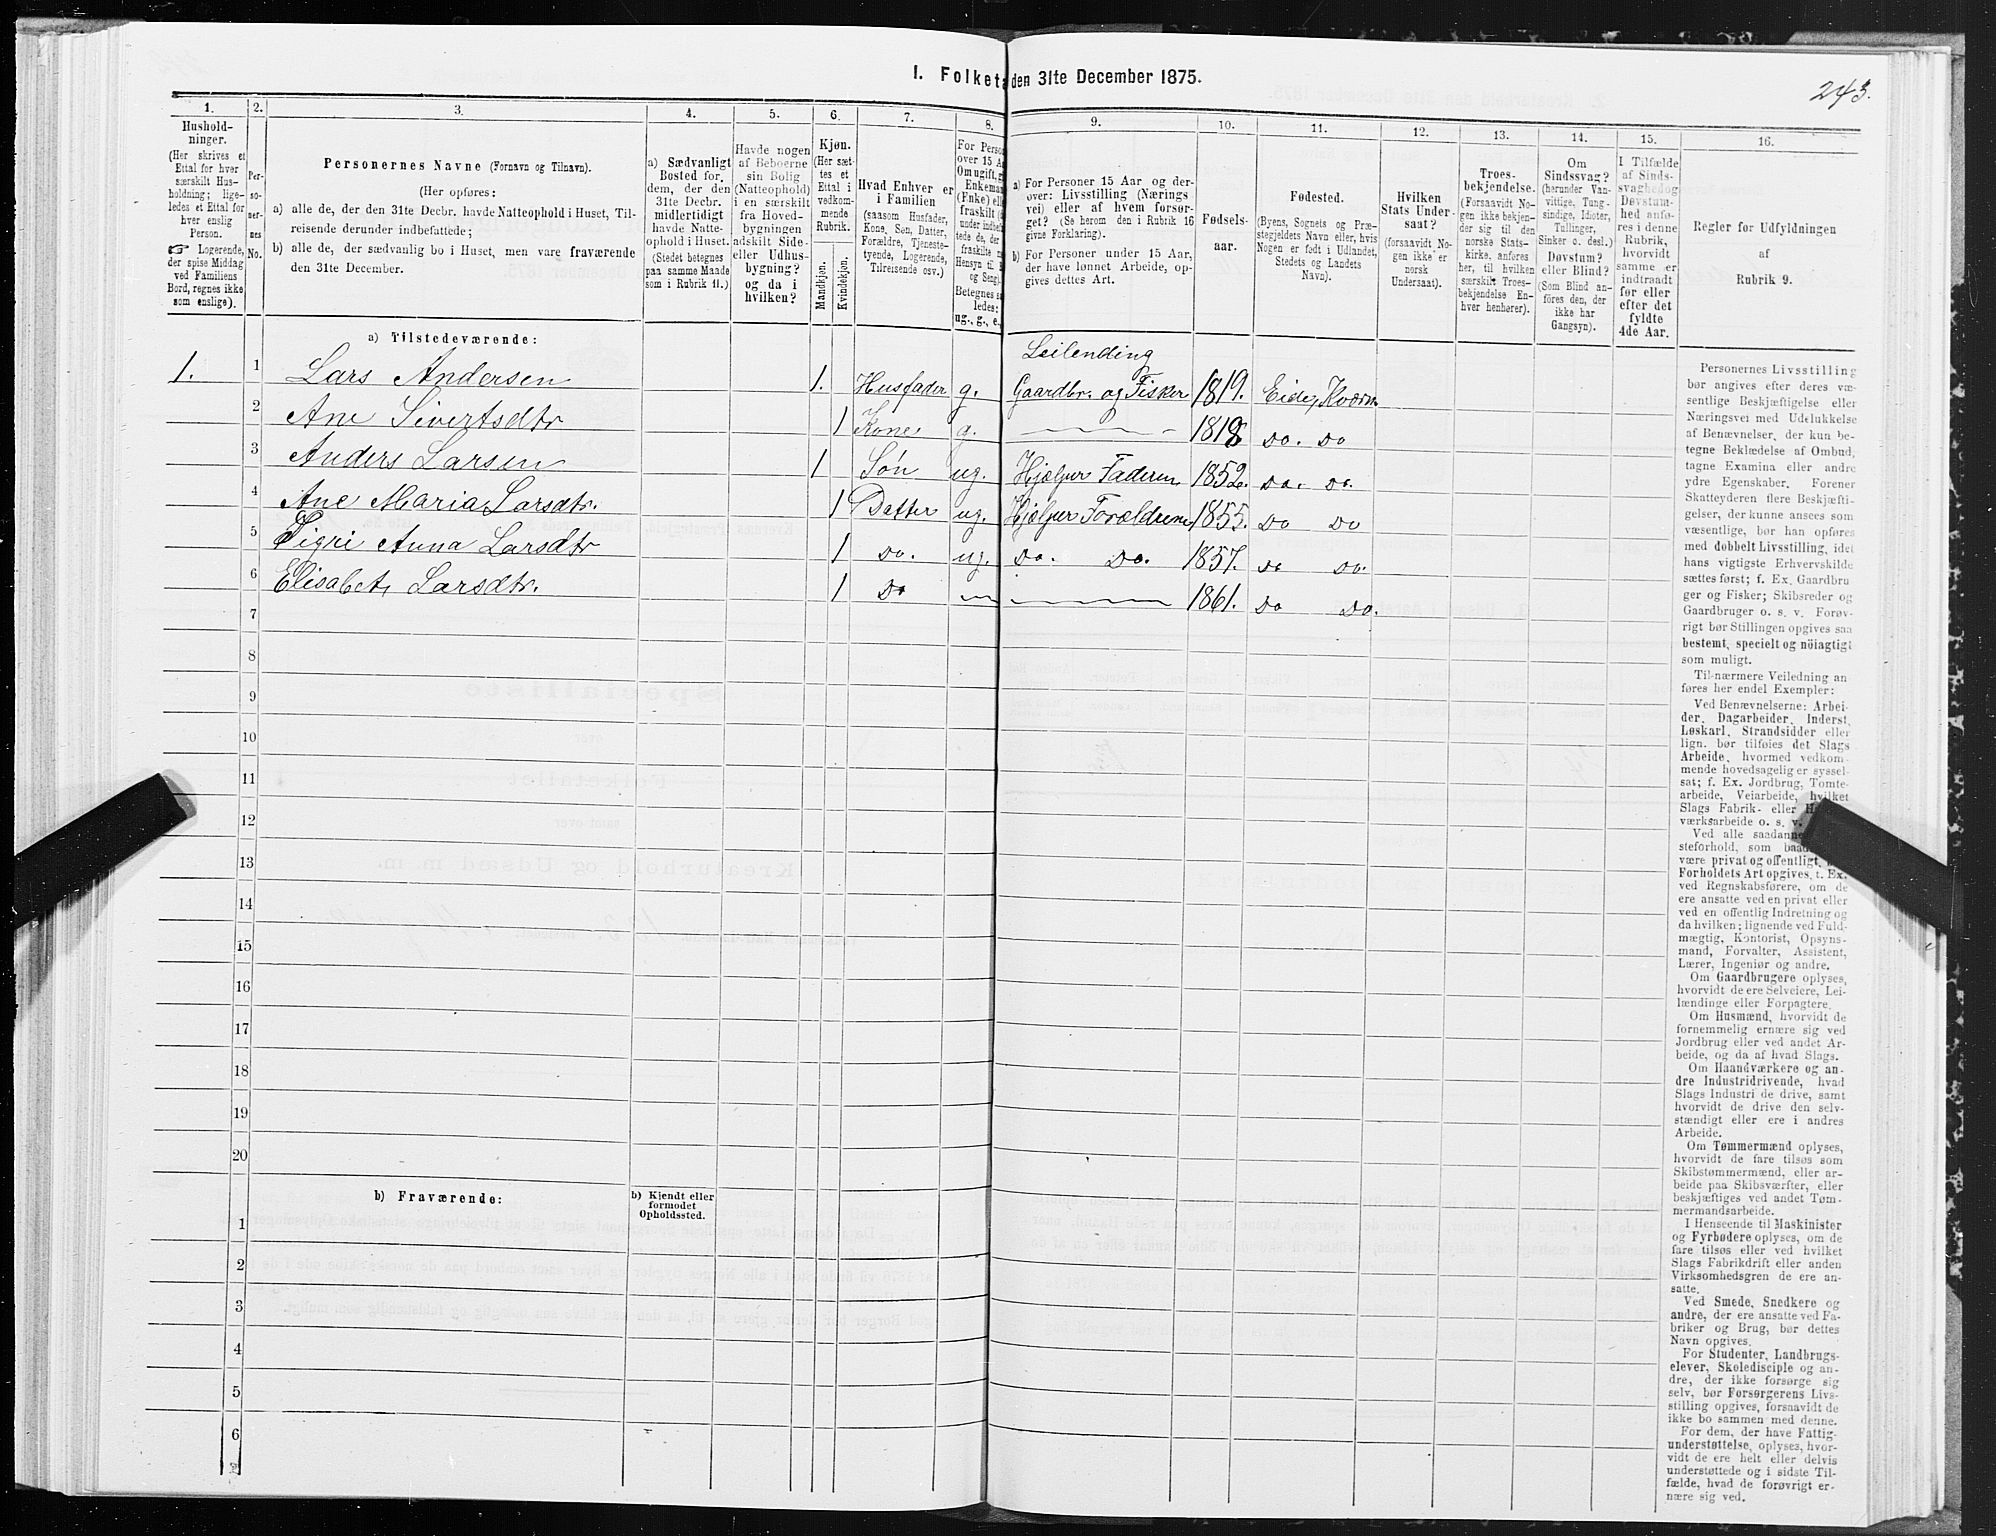 I. Folketa den 31te December 1875.
243.
1.
Hushold-
ninger.
(Her skrives et
Ettal for hver
særskilt Hus-
holdning; lige-
ledes et Ettal for
hver enslig
Person.
☞ Logerende,
der spise Middag
ved Familiens
Bord, regnes ikke
som enslige).
2.
Per-
so-
ner-
nes
No.
3.
Personernes Navne (Fornavn og Tilnavn).
(Her opføres:
a) alle de, der den 31te Decbr. havde Natteophold i Huset, Til-
reisende derunder indbefattede;
b) alle de, der sædvanlig bo i Huset, men vare fraværende
den 31te December.
4.
a) Sædvanligt
Bosted for
dem, der den
31te Decbr.
midlertidigt
havde Natte-
ophold i Huset.
(Stedet betegnes
paa samme Maade
som i Rubrik 11.)
5.
Havde nogen
af Beboerne
sin Bolig
(Natteophold)
i en særskilt
fra Hoved-
bygningen
adskilt Side-
eller Udhus-
bygning?
og da i
hvilken?
6.
Kjøn.
(Her sæt-
tes et
Ettal i
vedkom-
mende
Rubrik.
Mandkjøn.
Kvindekjøn.
7.
Hvad Enhver er
i Familien
(saasom Husfader,
Kone, Søn, Datter,
Forældre, Tjeneste-
tyende, Logerende,
Tilreisende osv.)
8.
For Perso
over 15 A
Om ugift, gi
Enkema
(Enke) ell
fraskilt (
under indbe
tede de, de
fraskilte
Hensyn til
og Seng).
Betegnes s
ledes:
ug., g., e.,
9.
a) For Personer 15 Aar og der-
over: Livsstilling (Nærings
vei) eller af hvem forsør-
get? (Se herom den i Rubrik 16
givne Forklaring).
b) For Personer under 15 Aar,
der have lønnet Arbeide, op-
gives dettes Art.
10.
Fødsels-
aar.
11.
Fødested.
(Byens, Sognets og Præ-
stegjeldets Navn eller, hvis
Nogen er født i Udlandet,
Stedets og Landets
Navn).
12.
Hvilken
Stats Under-
saat?
(forsaavidt No-
gen ikke er
norsk
Undersaat).
13.
Troes-
bekjendelse.
(Forsaavidt No-
gen ikke bekjen-
der sig til den
norske Stats-
kirke, anføres
her, til hvilken
særskilt Troes-
bekjendelse En-
hver henhører).
14.
Om
Sindssvag?
(herunder Van-
vittige, Tung-
sindige, Idioter,
Tullinger,
Sinker o. desl.)
Døvstum?
eller Blind?
(Som Blind an-
føres den, der
ikke har
Gangsyn).
15.
I Tilfælde
af Sinds-
svaghed og
Døvstum-
hed anfø-
res i denne
Rubrik,
hvorvidt
samme er
indtraadt
før eller
efter det
fyldte
4de Aar.
16.
Regler for Udfyldningen
af
Rubrik 9.
a) Tilstedeværende:
Leilending
1. 1 Lars Andersen 1. Husfader g. Gaardbr. og Fisker 1819. Eide, Kværn
2 Ane Sivertsdtr 1 Kone g. 1818 Do. Do
3 Anders Larsen 1 Søn ug. Hjælper Faderen 1852. Do. Do.
4 Ane Maria Larsdtr. 1 Datter ug. Hjælper Forældrene 1855. Do Do
5 Sigri Anna Larsdtr 1 Do. ug. Do. Do. 1857. Do Do.
6 Elisabet Larsdtr. 1 Do 1861. Do Do.
7
8
9
10
11
12
13
14
15
16
17
18
19
20
b) Fraværende:
b) Kjendt eller
formodet
Opholdssted.
1
2
3
4
5
6
Personernes Livsstilling
bør angives efter deres væ-
sentlige Beskjæftigelse eller
Næringsvei med Udelukkelse
af Benævnelser, der kun be-
tegne Beklædelse af Ombud,
tagne Examina eller andre
ydre Egenskaber. Forener
Skatteyderen flere Beskjæfti-
gelser, der kunne ansees som
væsentlige, bør han opføres
med dobbelt Livsstilling, idet
hans vigtigste Erhvervskilde
sættes først; f. Ex. Gaardbru
ger og Fisker; Skibsreder og
Gaardbruger o. s. v. Forøv-
rigt bør Stillingen opgives saa
bestemt, specielt og nöiagtigt
som muligt.
Til nærmere Veiledning an-
føres her endel Exempler:
Ved Benævnelserne: Arbei-
der, Dagarbeider, Inderst,
Løskarl, Strandsidder eller
lign. bør tilføies det Slags
Arbeide, hvormed vedkom-
mende hovedsagelig er syssel-
sat; f. Ex. Jordbrug, Tomte-
arbeide, Veiarbeide, hvilket
Slags Fabrik- eller H
værksarbeide o. s. v.
Ved alle saadanne
steforhold, som baade
være privat og offentligt,
Forholdets Art opgives, t. Ex.
ved Regnskabsførere, om de
ere ansatte ved en privat eller
ved en offentlig Indretning og
da hvilken; lignende ved Fuld-
mægtig, Kontorist, Opsyns-
mand, Forvalter, Assistent,
Lærer, Ingeniør og andre.
Om Gaardbrugere oplyses,
hvorvidt de ere Selveiere, Lei-
lændinge eller Forpagtere.
Om Husmænd, hvorvidt de
fornemmelig ernære sig ved
Jordbrug eller ved andet Ar-
beide, og da af hvad Slags.
Om Haandværkere og an-
dre Industridrivende, hvad
Slags Industri de drive, samt
hvorvidt de drive den selv-
stændigt eller ere i andres
Arbeide.
Om Tømmermænd oplyses,
hvorvidt de fare tilsøs som
Skibstømmermænd, eller ar-
beide paa Skibsværfter, eller
beskjæftiges ved andet Tøm-
mermandsarbeide.
I Henseende til Maskinister
og Fyrbødere oplyses, om de
fare tilsøs eller ved hvilket
Slags Fabrikdrift eller anden
Virksomhedsgren de ere an-
satte.
Ved Smede, Snedkere og
andre, der ere ansatte ved Fa-
briker og Brug, bør dettes
Navn opgives.
For Studenter, Landbrugs-
elever, Skoledisciple og an-
dre, der ikke forsørge sig
selv, bør Forsørgerens Livs-
stilling opgives, forsaavidt de
ikke bo sammen med denne.
For dem, der have Fattig-
understøttelse, oplyses, hvor-
vidt de ere helt eller delvis
understøttede og i sidste Til-
fælde, hvad de forøvrigt er-
nære sig ved.